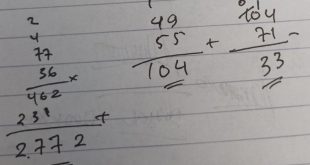 2
4
77
36 ×
462
231 +
2.772
49
55 +
104
104
71 -
33